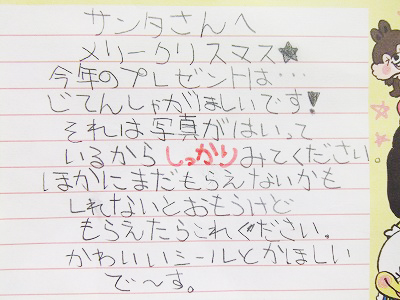 サンタさんへ
メリークリスマス★
今年のプレゼントは…
じてんしゃがほしいです!
それは写真がはいって
いるからしっかりみてください。
ほかにまだもらえないかも
しれないとおもうけど
もらえたらこれください。
かわいいシールとかほしい
で〜す。